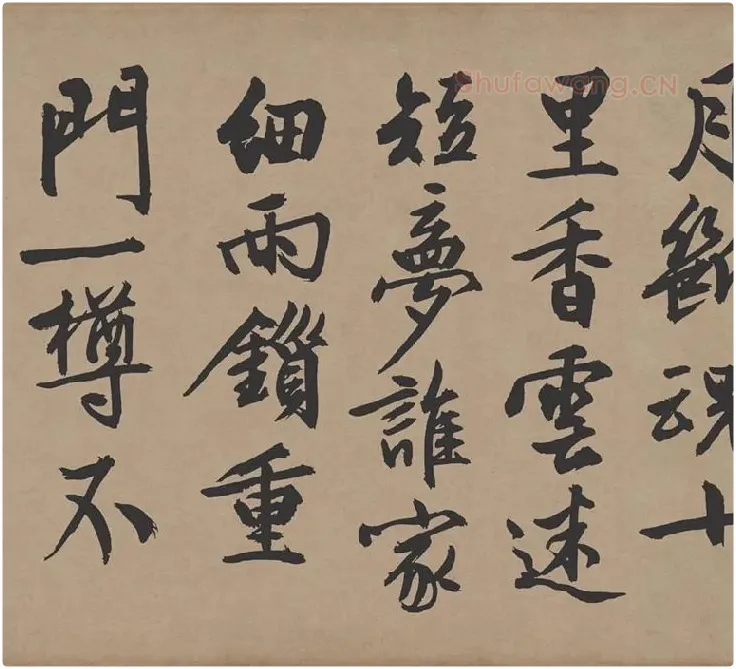 月斷魂十
里香雲迷
短夢誰家
細雨鎖重
門一樽不
Shufawang.CN